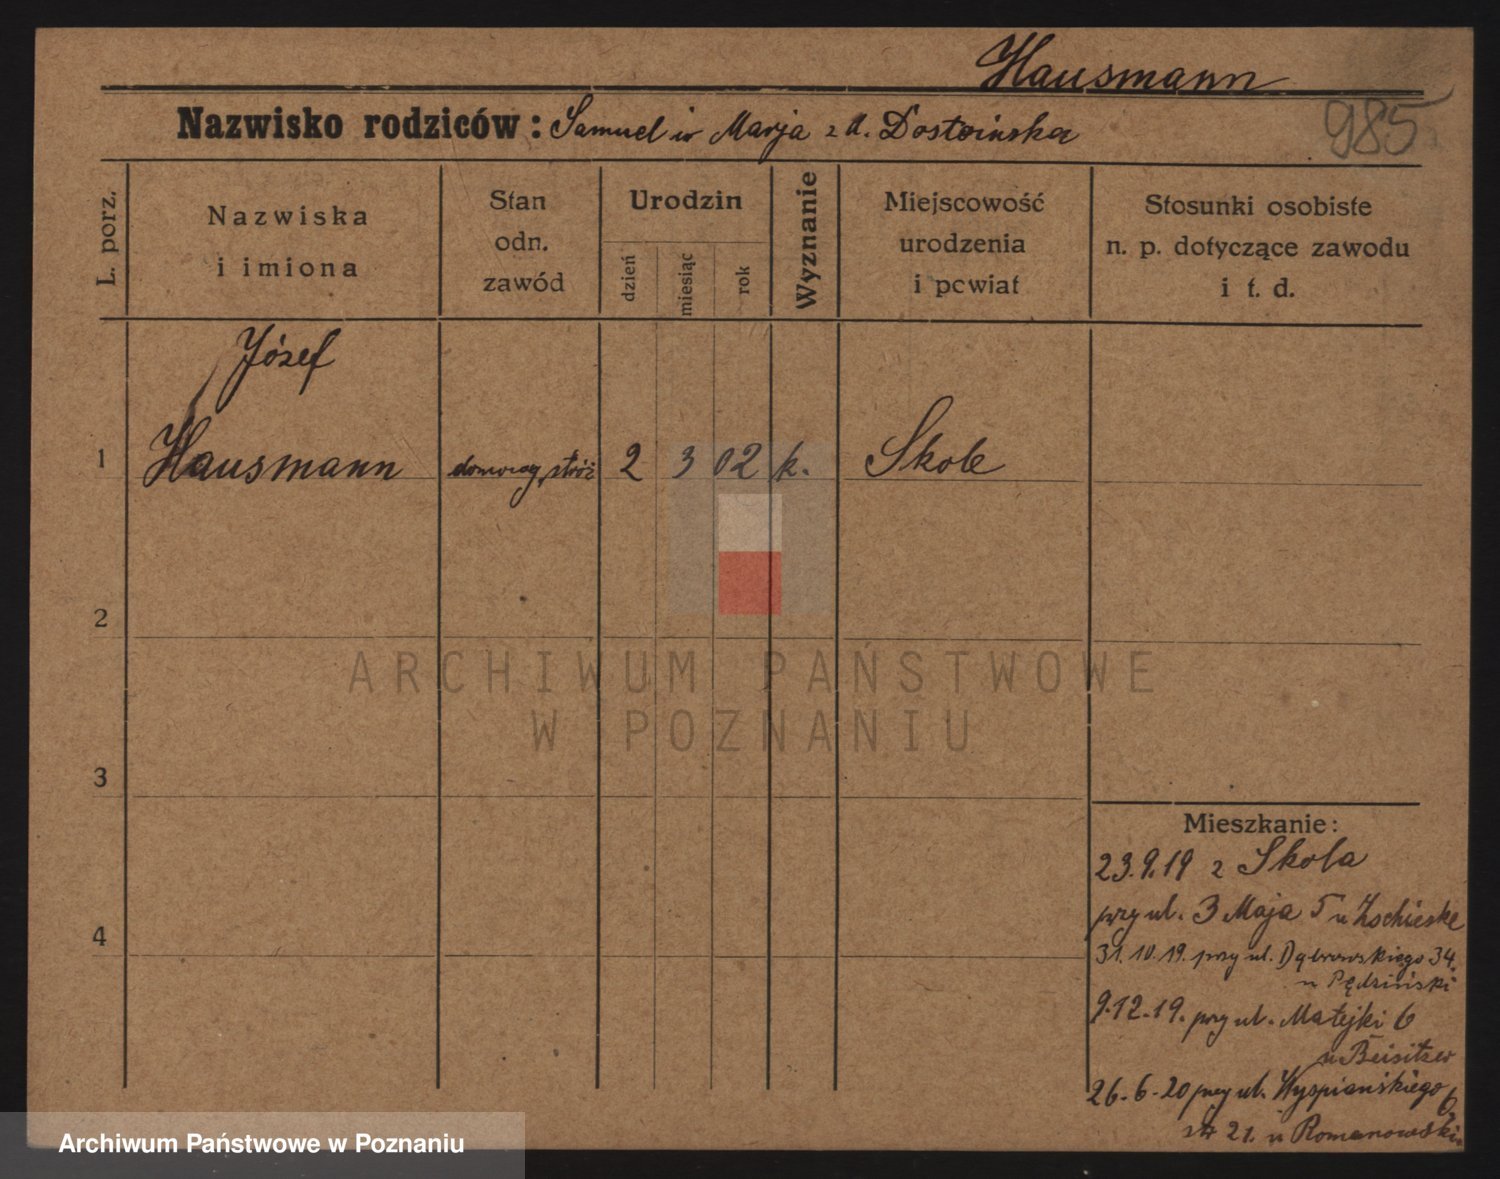 Hausmann
985
Nazwisko rodziców: Samuel Marja z d. Dostoińska
L. porz.
Nazwiska i imiona
Stan odn. zawód
Urodzin
dzień
miesiąc
rok
Wyznanie
Miejscowość urodzenia i powiat
Stosunki osobiste n. p. dotyczące zawodu i t. d.
Józef
1 Hausmann stróż 2 3 02 k. Skole
2
3
4
Mieszkanie:
23.9.19 z Skola
przy ul. 3 Maja 5 u Zschieske
31.10.19. przy ul. Dąbrowskiego 34.
u Pędziński
9.12.19. przy ul. Matejki 6
u Beisitzer
26-6-20 przy ul. Wyspiańskiego 6
21. u Romanowski
ARCHIWUM PAŃSTWOWE
W POZNANIU
Archiwum Państwowe w Poznaniu